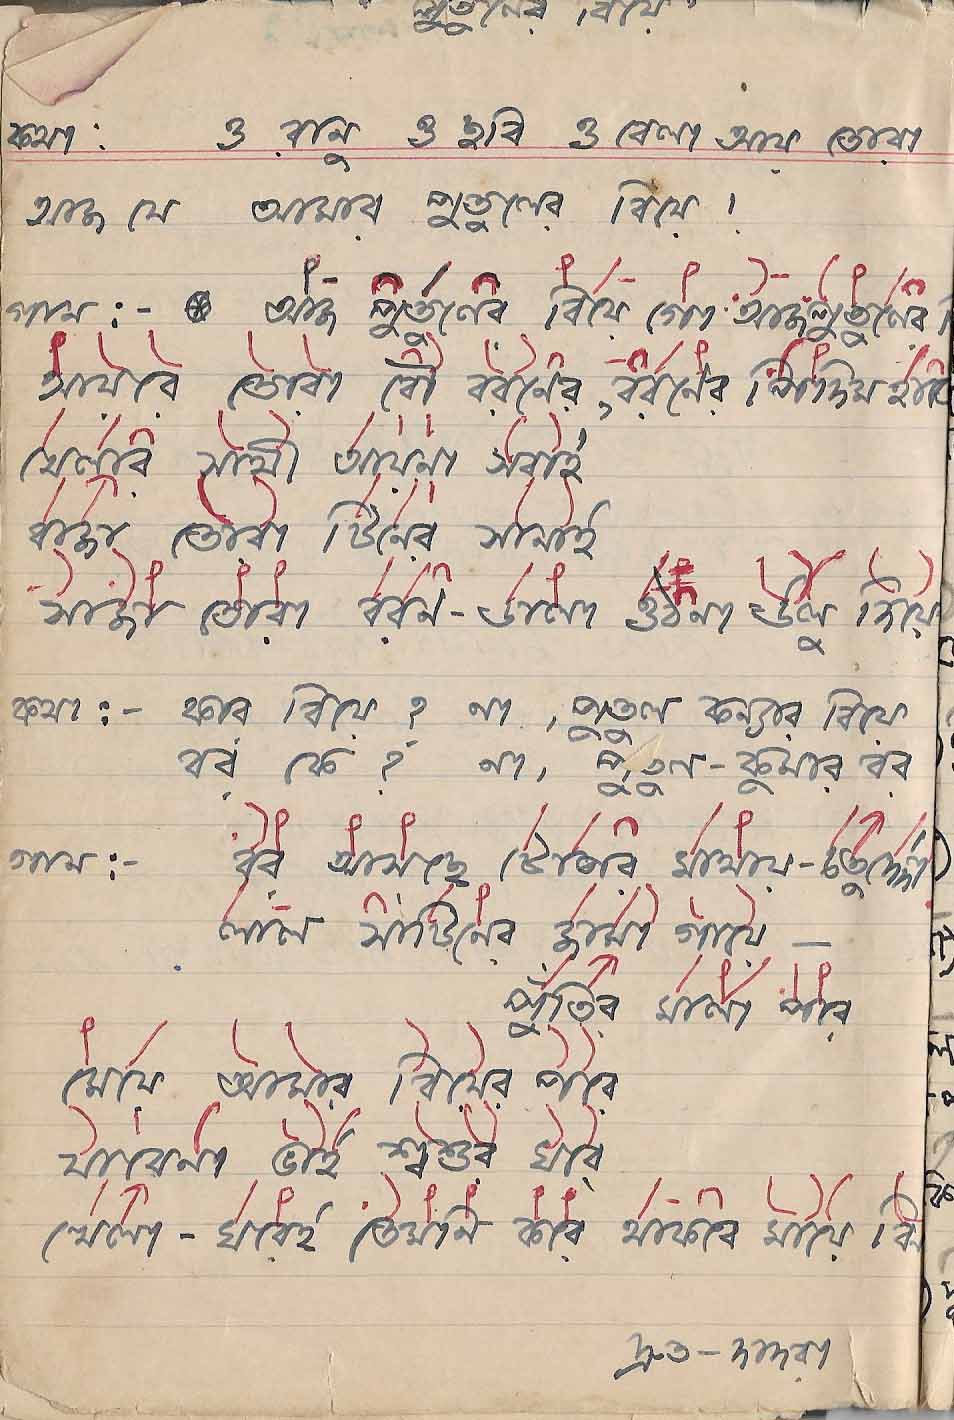 পুতুলের বিয়ে
কথা : ও রানু ও ছবি ও বেলা আয় তোরা
আজ যে আমার পুতুলের বিয়ে !
গান :- আজ পুতুলের বিয়ে গো আজ পুতুলের
আয়রে তোরা বৌ বরণের, বরণের পিদিম
খেলার সাথী আয়না সবাই
বাজা তোরা টিনের সানাই
সাজা তোরা বরন-ডালা ওঠনা উলু দিয়ে
কথা :- কার বিয়ে ? না, পুতুল কন্যার বিয়ে
বর কে ? না, পুতুল-কুমার বর
গান :- বর আসছে টোপর মাথায়-
লাল সাটিনের জামা গায়ে —
পুঁতির মালা পরে
মেয়ে আমার বিয়ের পরে
যাবেনা ভাই শ্বশুর ঘরে
খেলা - ঘরেই তেমনি করে থাকবে মায়ে
দ্রুত - দাদরা